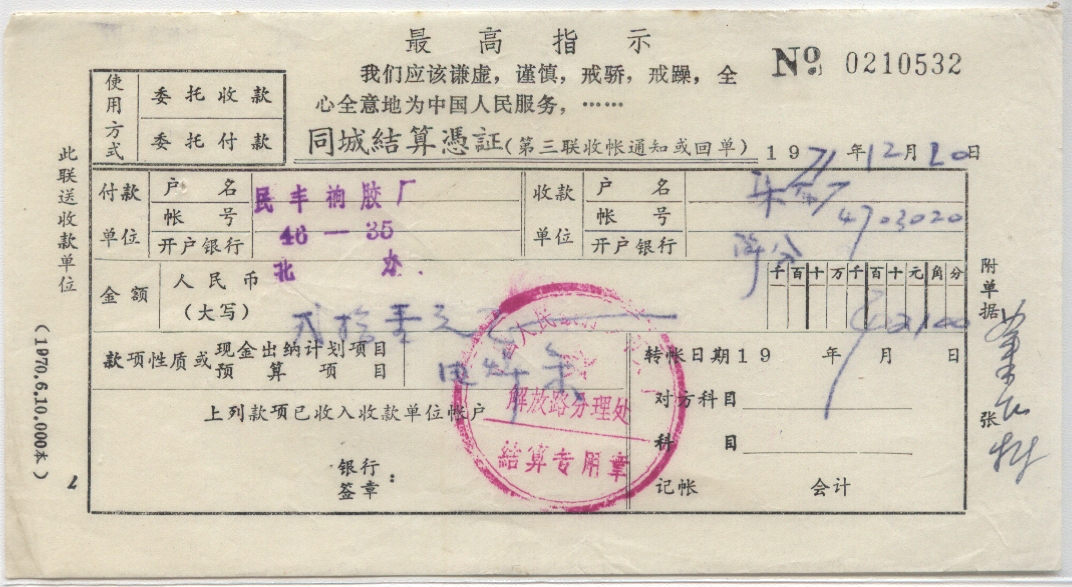 最高指示
我们应该谦虚，谨慎，戒骄，戒躁，全
心全意地为中国人民服务，……
№ 0210532
使用方式
委托收款
委托付款
同城結算憑証（第三联收帐通知或回单）
1971年12月20日
此联送收款单位
付款单位
户名
帐号
开户银行
民丰橡胶厂
46—35
北办.
收款单位
户名
帐号
开户银行
4703020
金额
人民币
（大写）
千百十万千百十元角分
附单据
张
款项性质或
现金出纳计划项目
预算项目
转帐日期19 年 月 日
上列款项已收入收款单位帐户
对方科目
科目
银行
签章：
记帐
会计
解放路分理处
結算专用章
（1970.6.10.000本）